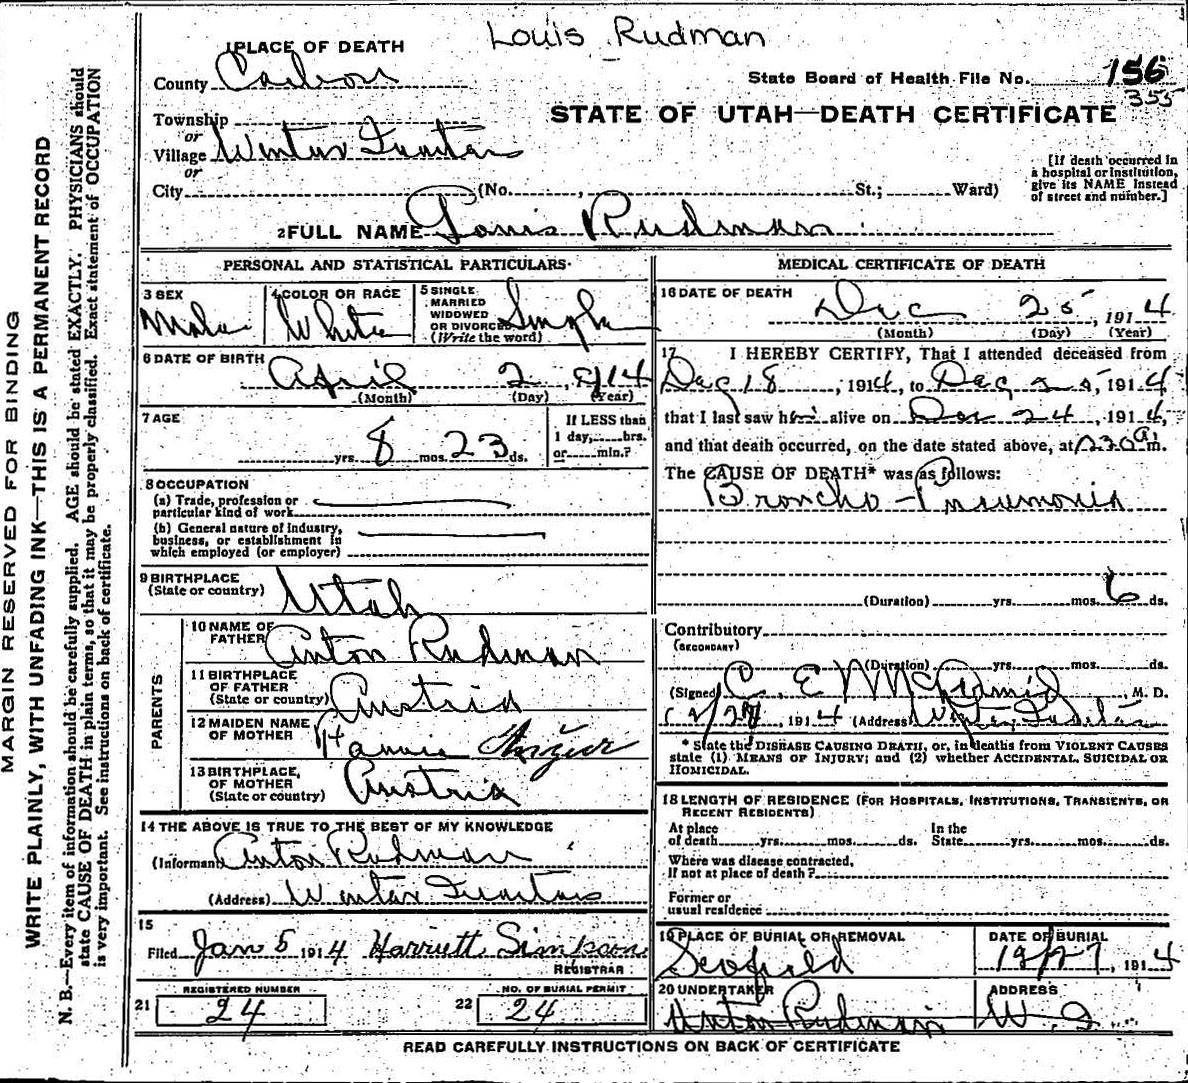 Louis Rudman
1 PLACE OF DEATH
County Carbon
State Board of Health File No. 156
355
Township
or
Village Winter Quarters
or
City (No. , St.; Ward)
STATE OF UTAH—DEATH CERTIFICATE
[If death occurred in
a hospital or institution,
give its NAME instead
of street and number.]
2 FULL NAME Louis Rudman
PERSONAL AND STATISTICAL PARTICULARS
3 SEX
Male
4 COLOR OR RACE
White
5 SINGLE
MARRIED
WIDOWED
OR DIVORCED
(Write the word)
Single
6 DATE OF BIRTH
April 2, 1914
(Month) (Day) (Year)
7 AGE
yrs. 8 mos. 23 ds.
If LESS than
1 day, hrs.
or min.?
8 OCCUPATION
(a) Trade, profession or
particular kind of work
(b) General nature of industry,
business, or establishment in
which employed (or employer)
9 BIRTHPLACE
(State or country)
Utah
PARENTS
10 NAME OF
FATHER
Anton Rudman
11 BIRTHPLACE
OF FATHER
(State or country)
Austria
12 MAIDEN NAME
OF MOTHER
Hannie
13 BIRTHPLACE
OF MOTHER
(State or country)
Austria
14 THE ABOVE IS TRUE TO THE BEST OF MY KNOWLEDGE
(Informant Anton Rudman
(Address) Winter Quarters
15
Filed Jan 5 1914 Harriett Simpson
REGISTRAR
21
REGISTERED NUMBER
24
22
NO. OF BURIAL PERMIT
24
MEDICAL CERTIFICATE OF DEATH
16 DATE OF DEATH
Dec 25, 1914
(Month) (Day) (Year)
17 I HEREBY CERTIFY, That I attended deceased from
Dec 18, 1914, to Dec 25, 1914
that I last saw him alive on Dec 24, 1914,
and that death occurred, on the date stated above, at 230 a m.
The CAUSE OF DEATH* was as follows:
Broncho-Pneumonia
(Duration) yrs. mos. 6 ds.
Contributory
(SECONDARY)
(Duration) yrs. mos. ds.
(Signed) C. E McDermid, M. D.
12/27, 1914 (Address) Winter Quarters
* State the DISEASE CAUSING DEATH, or, in deaths from VIOLENT CAUSES
state (1) MEANS OF INJURY; and (2) whether ACCIDENTAL, SUICIDAL OR
HOMICIDAL.
18 LENGTH OF RESIDENCE (FOR HOSPITALS, INSTITUTIONS, TRANSIENTS, OR
RECENT RESIDENTS)
At place
of death yrs. mos. ds.
In the
State yrs. mos. ds.
Where was disease contracted,
If not at place of death?
Former or
usual residence
19 PLACE OF BURIAL OR REMOVAL
Scofield
DATE OF BURIAL
12/27, 1914
20 UNDERTAKER
Anton Rudman
ADDRESS
W. Q.
READ CAREFULLY INSTRUCTIONS ON BACK OF CERTIFICATE
MARGIN RESERVED FOR BINDING
WRITE PLAINLY, WITH UNFADING INK—THIS IS A PERMANENT RECORD
N. B.—Every item of information should be carefully supplied. AGE should be stated EXACTLY. PHYSICIANS should
state CAUSE OF DEATH in plain terms, so that it may be properly classified. Exact statement of OCCUPATION
is very important. See instructions on back of certificate.